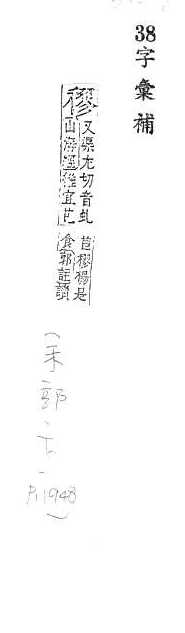 38字彙補
穋
又渠尤切音虬
山海經維宜芑
苣穋楊是
食郭註謂
(禾部、十一 P.1948)